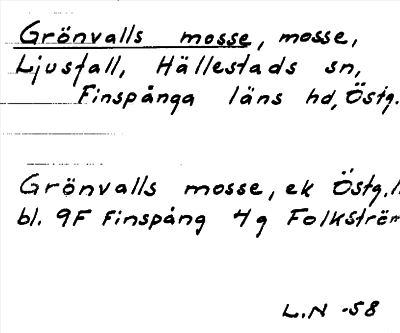 Grönvalls mosse, mosse,
Ljusfall, Hällestads sn,
Finspånga läns hd, Östg.
Grönvalls mosse, ek Östg.
bl. 9F Finspång 4g Folkström
L.N -58